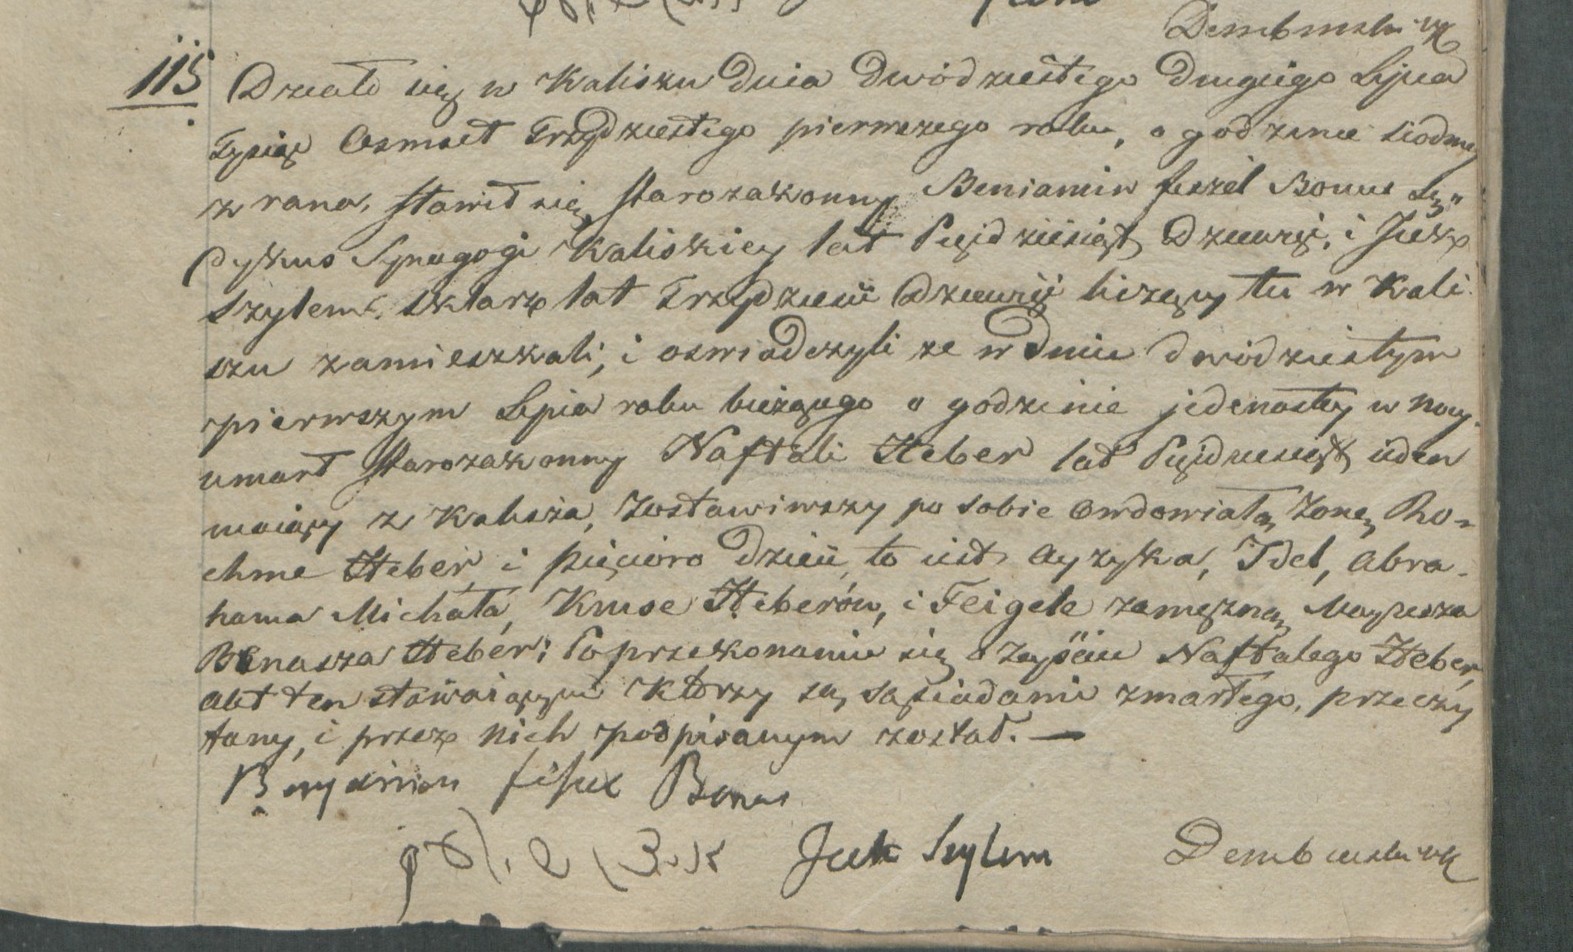 Dembinski
115
Działo się w Kaliszu Dnia dwódziestego Drugiego Lipca
Tysiąc Osmset Trzydziestego pierwszego roku, o godzinie siodmey
z rana, stawił się starozakonny Beniamin fiszel Bonus Sy„
dykus Synagogi Kaliskiey lat Pięjdziesiąt Dziewięć, i Jcek
Szylem szklarz lat Trzydzieści Dziewięć liczący tu w Kali
szu zamieszkali, i oswiadczyli ze w dniu dwódziestym
pierwszym Lipca roku bieżącego o godzinie jedenastey w nocy
umarł starozakonny Naftali Heber lat Pięjdziesiąt ieden
maiący z Kalisza, Zostawiwszy po sobie owdowiałą Zonę Ro-
chme Heber i pięcioro dzieci, to iest Ayzyka, Idel, Abra-
hama Michała, Kruse Heberów, i Feigele zamężną Moyżesza
Benasza Heber; Po przekonaniu się o Zeyściu Naftalego Heber,
akt ten stawaiącym Którzy są sąsiadami zmarłego, przeczy
tany, i przez nich podpisanym został. —
Benjamin fiszel Bonus
Jcek Szylem Dembinski